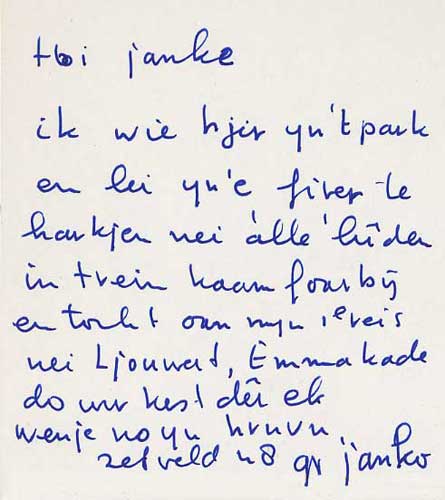 hoi janke
ik wie hjir yn't park
en lei yn'e fiver te
harkjen nei alle lûden
in trein kaam foarbij
en tocht oan myn 1e reis
nei Ljouwert, Emmakade
do wur hest dêr ek
wenje no yn
zetveld 48 gr janko